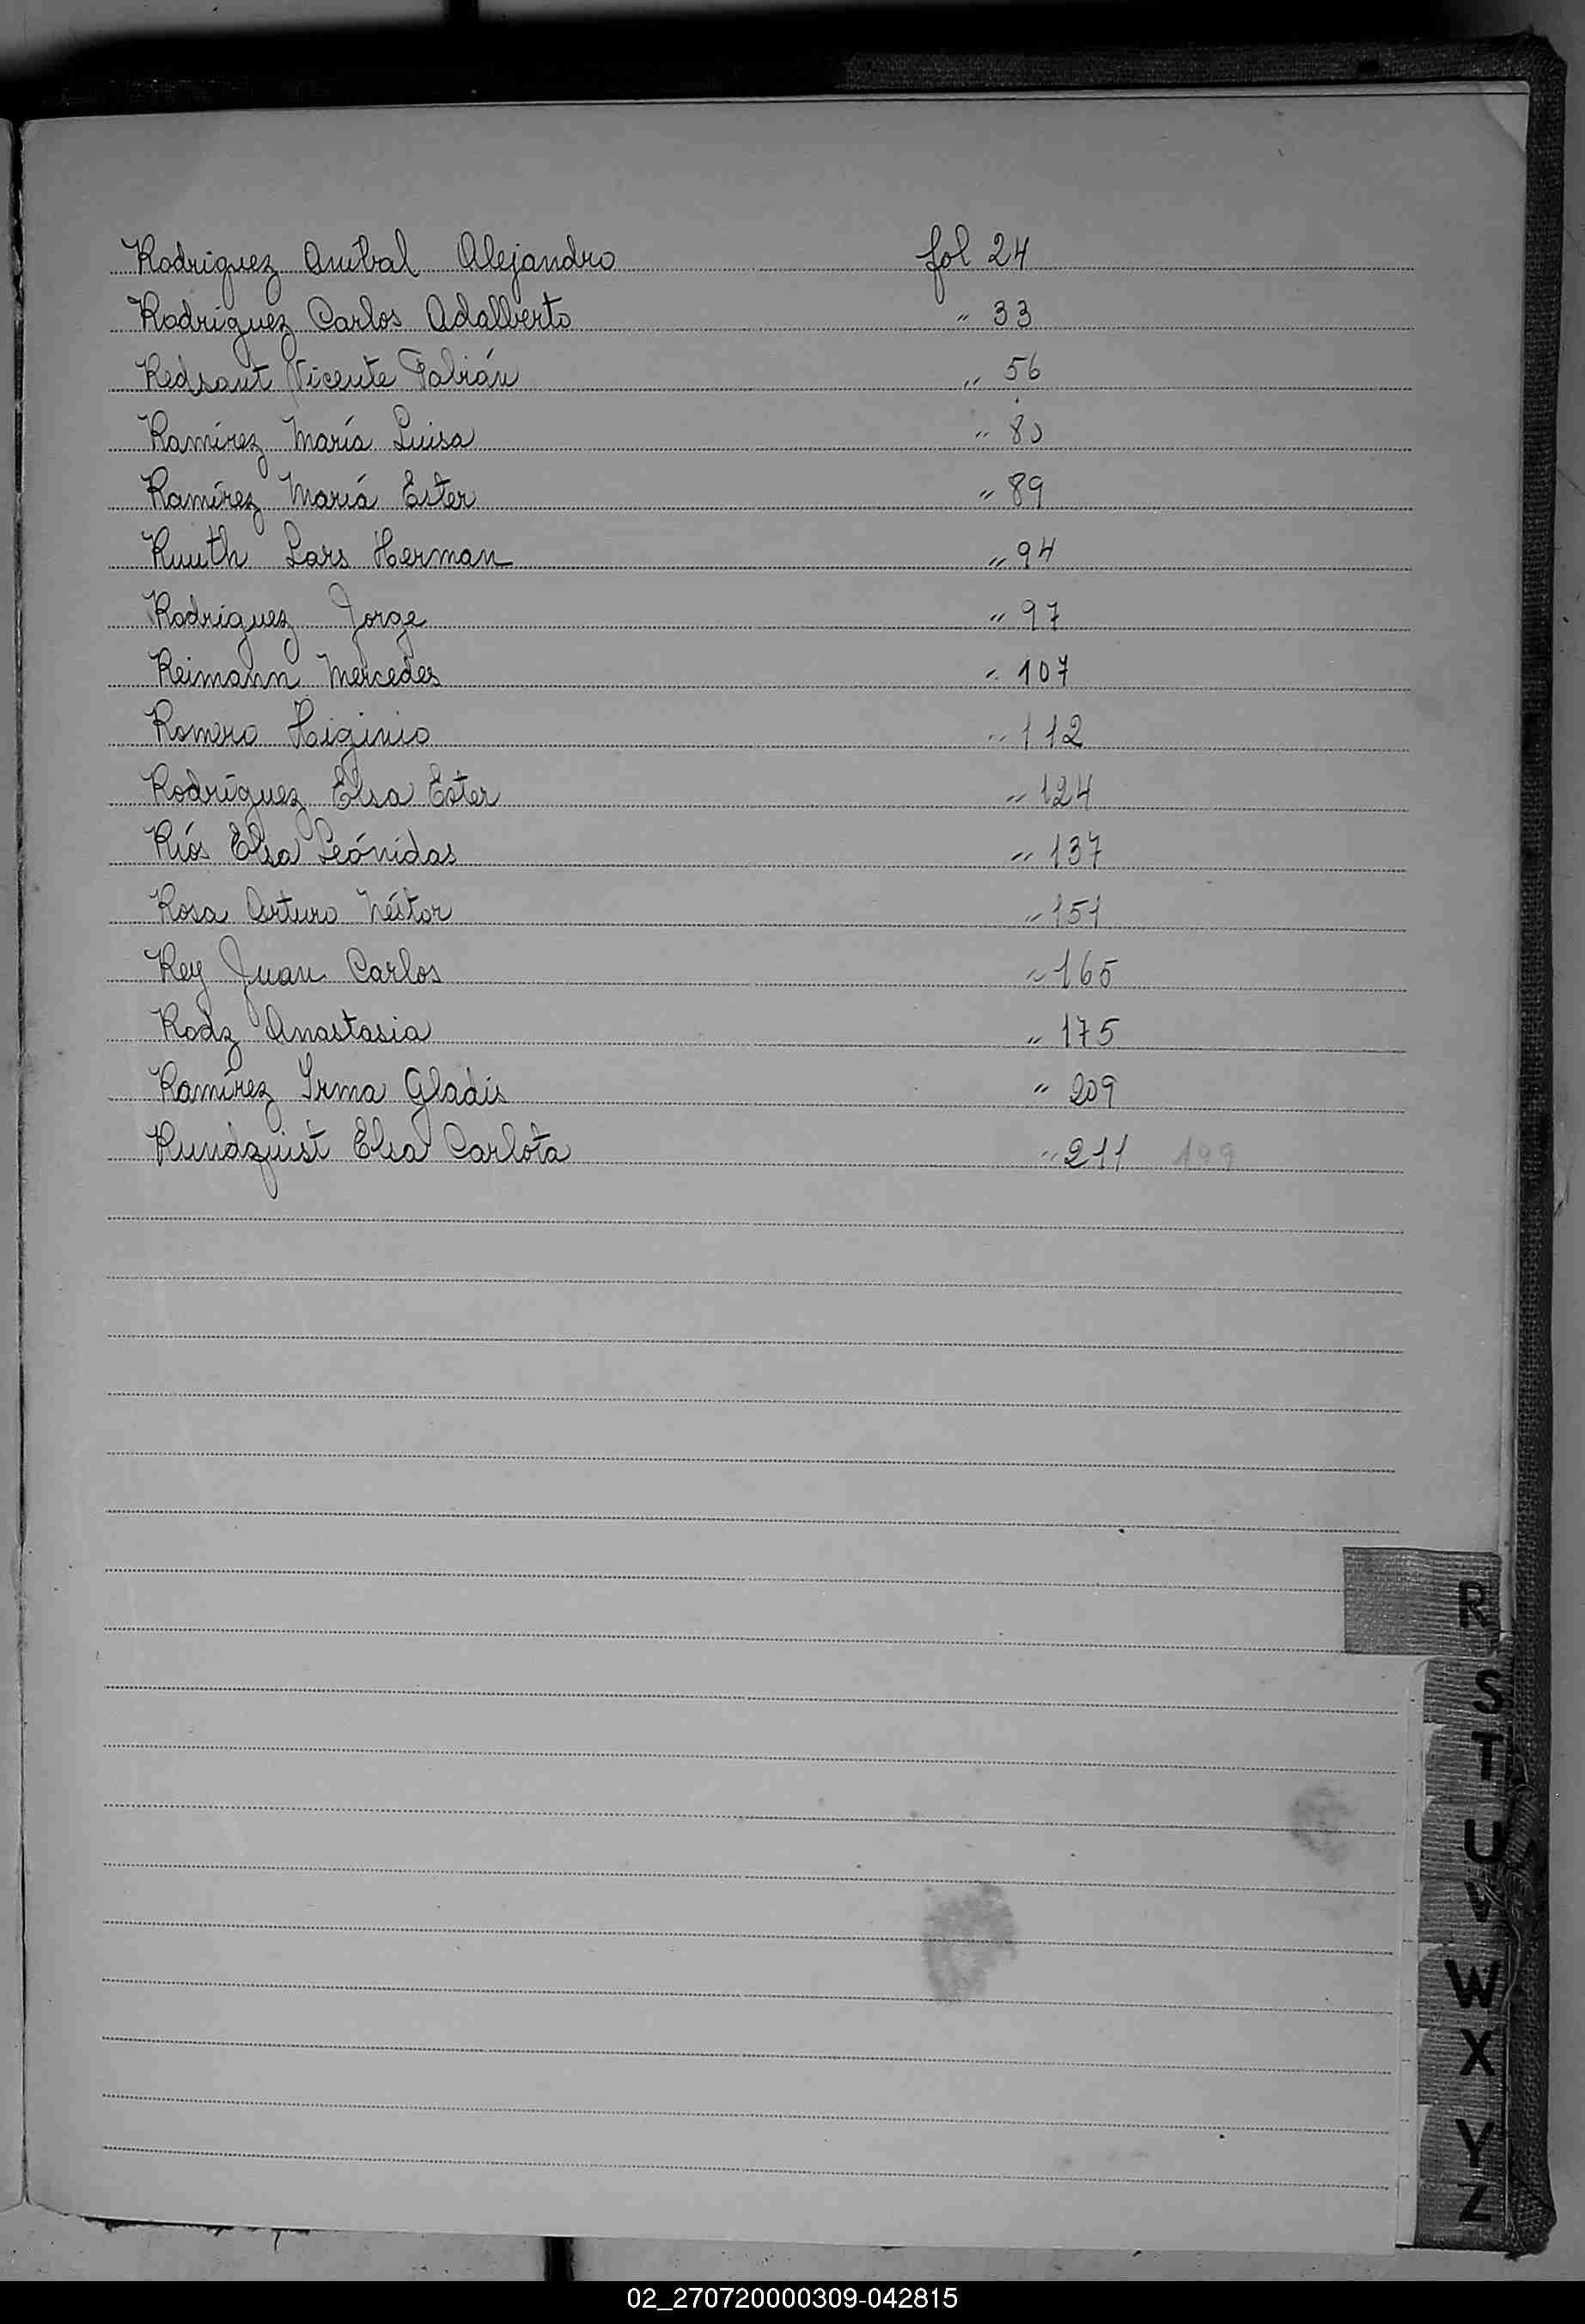 Rodriguez Aníbal Alejandro fol 24
Rodríguez Carlos Adalberto " 33
Redsant Vicente Fabián " 56
Ramírez María Luisa " 80
Ramírez María Ester " 89
Ruuth Lars Herman " 94
Rodríguez Jorge " 97
Reimann Mercedes " 107
Romero Higinio " 112
Rodríguez Elsa Ester " 124
Ríos Elsa Leónidas " 137
Rosa Arturo Néstor " 151
Rey Juan Carlos " 165
Rodz Anastasia " 175
Ramírez Irma Gladis " 209
Rundquist Elsa Carlota " 211 199
R
S
T
U
V
W
X
Y
Z
02_270720000309-042815